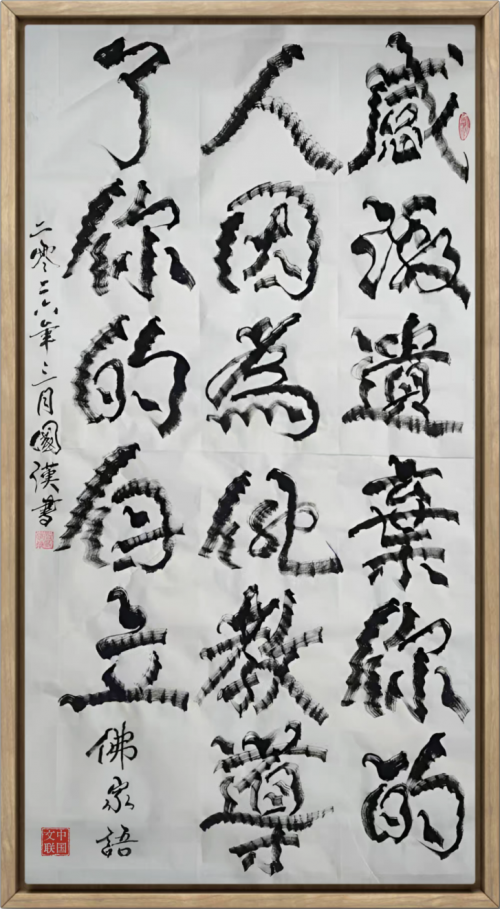 感激遺棄你的
人因為他教導
了你的自立
佛家語
二零二六年三月國漢書
中国文联